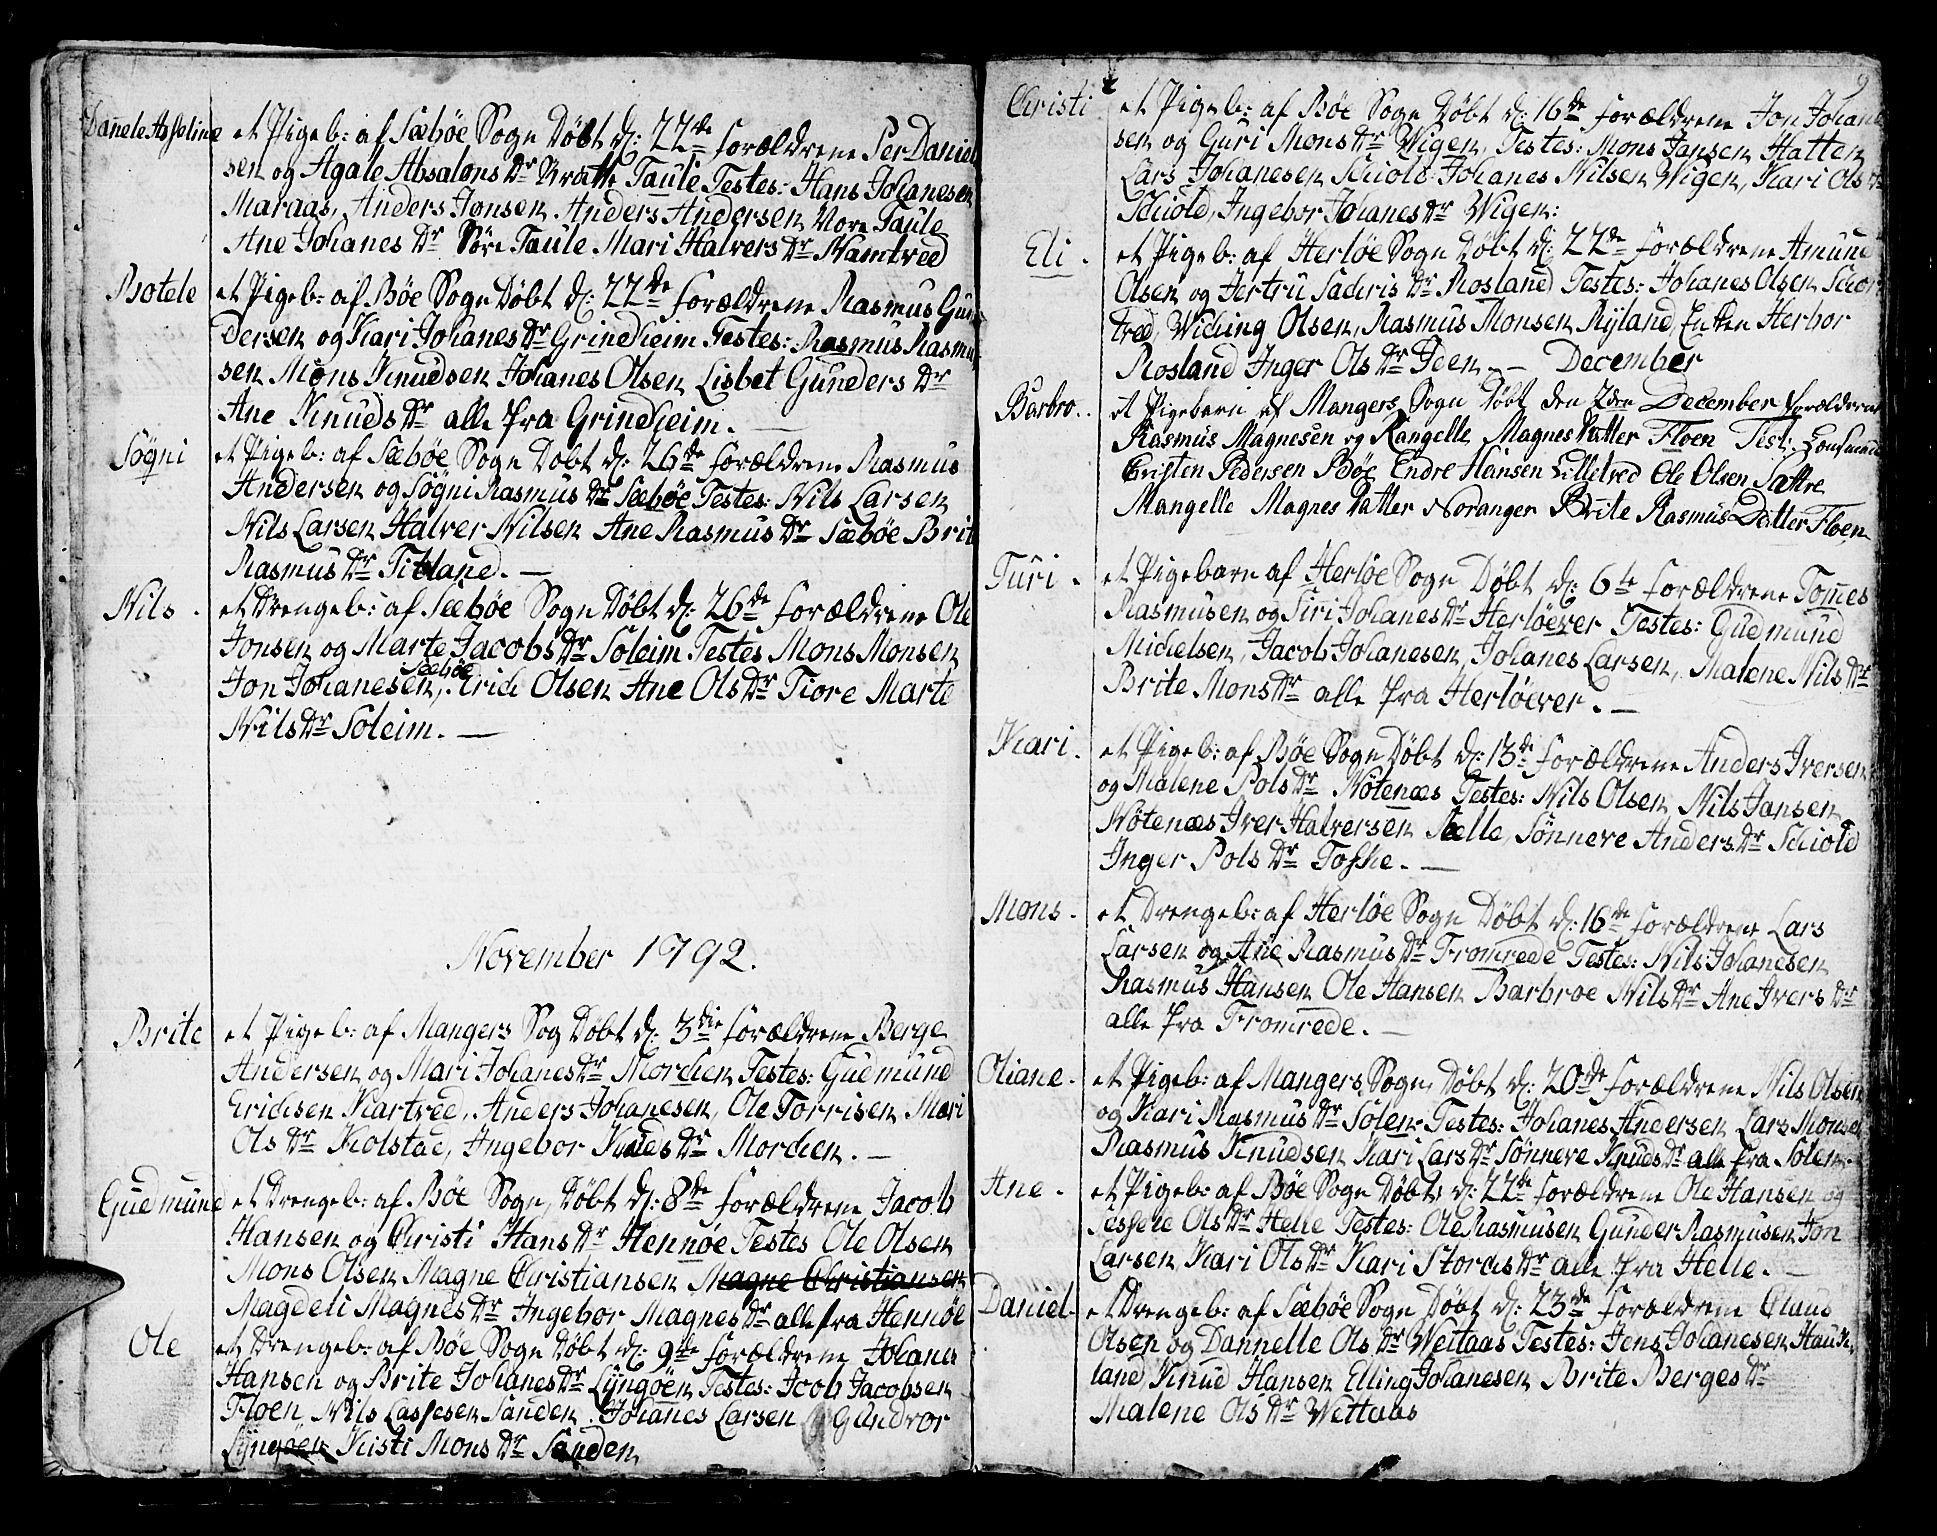 Danele Absseline et Pigeb: af Sæbøe Sogn Døbt d: 22de forældrene Per Daniel
sen og Agale Absalons Dr Taule Testes: Hans Johanesen
Maraas, Anders Jonsen Anders Andersen Nore Taule
Ane Johanes Dr Søre Taule Mari Halvers Dr Namtved
Botele et Pigeb: af Bøe Sogn Døbt d: 22de forældrene Rasmus Gun
dersen og Kari Johanes Dr Grindheim Testes: Rasmus Rasmu
sen Mons Knudsen Johanes Olsen Lisbet Gunders Dr
Ane Knuds Dr alle fra Grindheim.
Søgni et Pigeb: af Sæbøe Sogn Døbt d: 26de forældrene Rasmus
Andersen og Søgni Rasmus Dr Sæbøe Testes: Nils Larsen
Nils Larsen Halver Nilsen Ane Rasmus Dr Sæbøe Brit
Rasmus Dr Titland.
Nils et Drengeb: af Sæbøe Sogn Døbt d: 26de forældrene Ole
Jonsen og Marte Jacobs Dr Soleim Testes Mons Monsen
Sæbøe
Jon Johanesen, Erich Olsen Ane Ols Dr Fiore Marte
Nils Dr Soleim.
November 1792.
Brite et Pigeb: af Mangers Sog Døbt d: 3die forældrene Berge
Andersen og Mari Johanes Dr Morchen Testes: Gudmund
Erichsen Kartved, Anders Johanesen, Ole Torrisen Mari
Ols Dr Kolstad, Ingebor Knudes Dr Morchen.
Gudmund et Drengeb: af Bøe Sogn, Døbt d: 8de forældrene Jacob
Hansen og Christi Hans Dr Hennøe Testes Ole Olsen
Mons Olsen Magne Christiansen Magne Christiansen
Magdeli Magnes Dr Ingebor Magnes Dr alle fra Hennøe
Ole et Drengeb: af Bøe Sogn Døbt d: 9de forældrene Johans
Hansen og Brite Johanes Dr Lyngøen Testes: Jcob Jacobsen
Floen, Nils Lassesen Sanden, Johanes Larsen Gundvor
Lyngøen Kisti Mons Dr Sanden
9
Christi et Pigeb: af Bøe Sogn Døbt d: 16de forældrene Jon Johane
sen og Guri Mons Dr Wigen, Testes: Mons Jansen Hatten
Lars Johanesen Schiold Johanes Nilsen Wigen, Kari Ols Dr
Schiold, Ingebor Johanes Dr Wigen:
Eli. et Pigeb: af Herløe Sogn Døbt d: 22de forældrene Amund
Olsen og Jertru Sachris Dr Rosland Testes: Johanes Olsen Schior
tved, Wiching Olsen, Rasmus Monsen Ryland, Enken Herbor
Rosland Inger Ols Dr Iden. December
Barbro. et Pigebarn af Mangers Sogn Døbt den 2den December forældrene
Rasmus Magnesen og Rangelle Magnes Datter Floen Test:
Cristen Pedersen Bøe Endre Hansen Lilletved Ole Olsen Sættre
Mangelle Magnes Datter Noranger Brite Rasmus Datter Floen
Turi. et Pigebarn af Herløe Sogn Døbt d: 6te forældrene Tomes
Rasmusen og Siri Johanes Dr Herløever Testes: Gudmund
Michelsen, Jacob Johanesen, Johanes Larsen, Malene Nils Dr
Brite Mons Dr alle fra Herløever.
Kari. et Pigeb: af Bøe Sogn Døbt d: 13de forældrene Anders Iversen
og Malene Pols Dr Nøtenæs Testes: Nils Olsen Nils Jansen
Nøtenæs Iver Halversen Sælle, Sønneve Anders Dr Schiold
Inger Pols Dr Toske.
Mons. et Drengeb: af Herløe Sogn Døbt d: 16de forældrene Lars
Larsen og Ane Rasmus Dr Fromrede Testes: Nils Johanesen
Rasmus Hansen Ole Hansen Barbroe Nils Dr Ane Ivers Dr
alle fra Fromrede.
Oliane. et Pigeb: af Mangers Sogn Døbt d: 20de forældrene Nils Olsen
og Kari Rasmus Dr Solen Testes: Johanes Andersen Lars Monsen
Rasmus Knudsen Kari Lars Dr Sønneve Knuds Dr alle fra Solen.
Ane. et Pigeb: af Bøe Sogn Døbt d: 22de forældrene Ole Hansen og
Ols Dr Helle Testes: Ole Rasmusen Gunder Rasmusen Jon
Larsen Kari Ols Dr Kari Storchs Dr alle fra Helle.
Daniel. et Drengeb: af Sæbøe Sogn Døbt d: 23de forældrene Claus
Olsen og Dannelle Ols Dr Wettaas Testes: Jens Johanesen Hauch
land, Knud Hansen Elling Johanesen Brite Berges Dr
Malene Ols Dr Wettaas